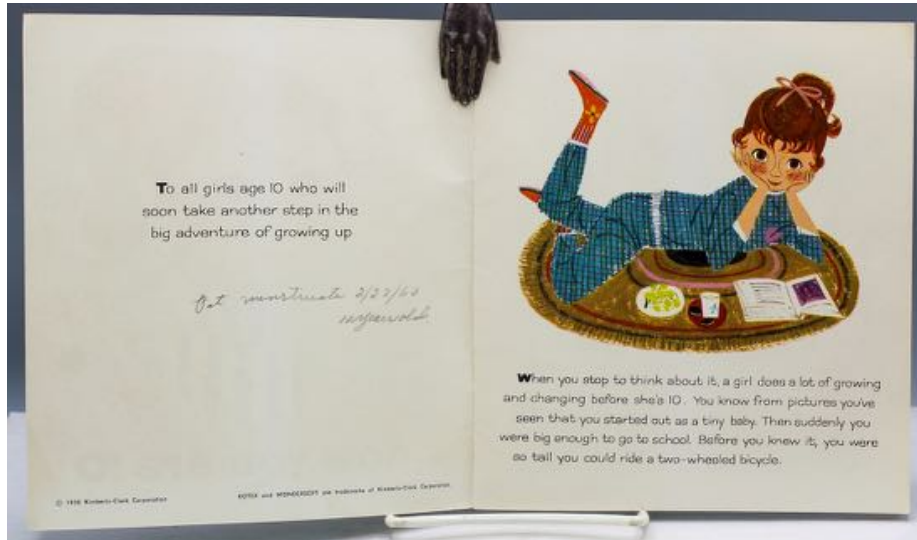 To all girls age 10 who will
soon take another step in the
big adventure of growing up
menstruate 2/27/60
years old.
© 1956 Kimberly-Clark Corporation
KOTEX and WONDERSOFT are trademarks of Kimberly-Clark Corporation
When you stop to think about it, a girl does a lot of growing
and changing before she's 10. You know from pictures you've
seen that you started out as a tiny baby. Then suddenly you
were big enough to go to school. Before you knew it, you were
so tall you could ride a two-wheeled bicycle.